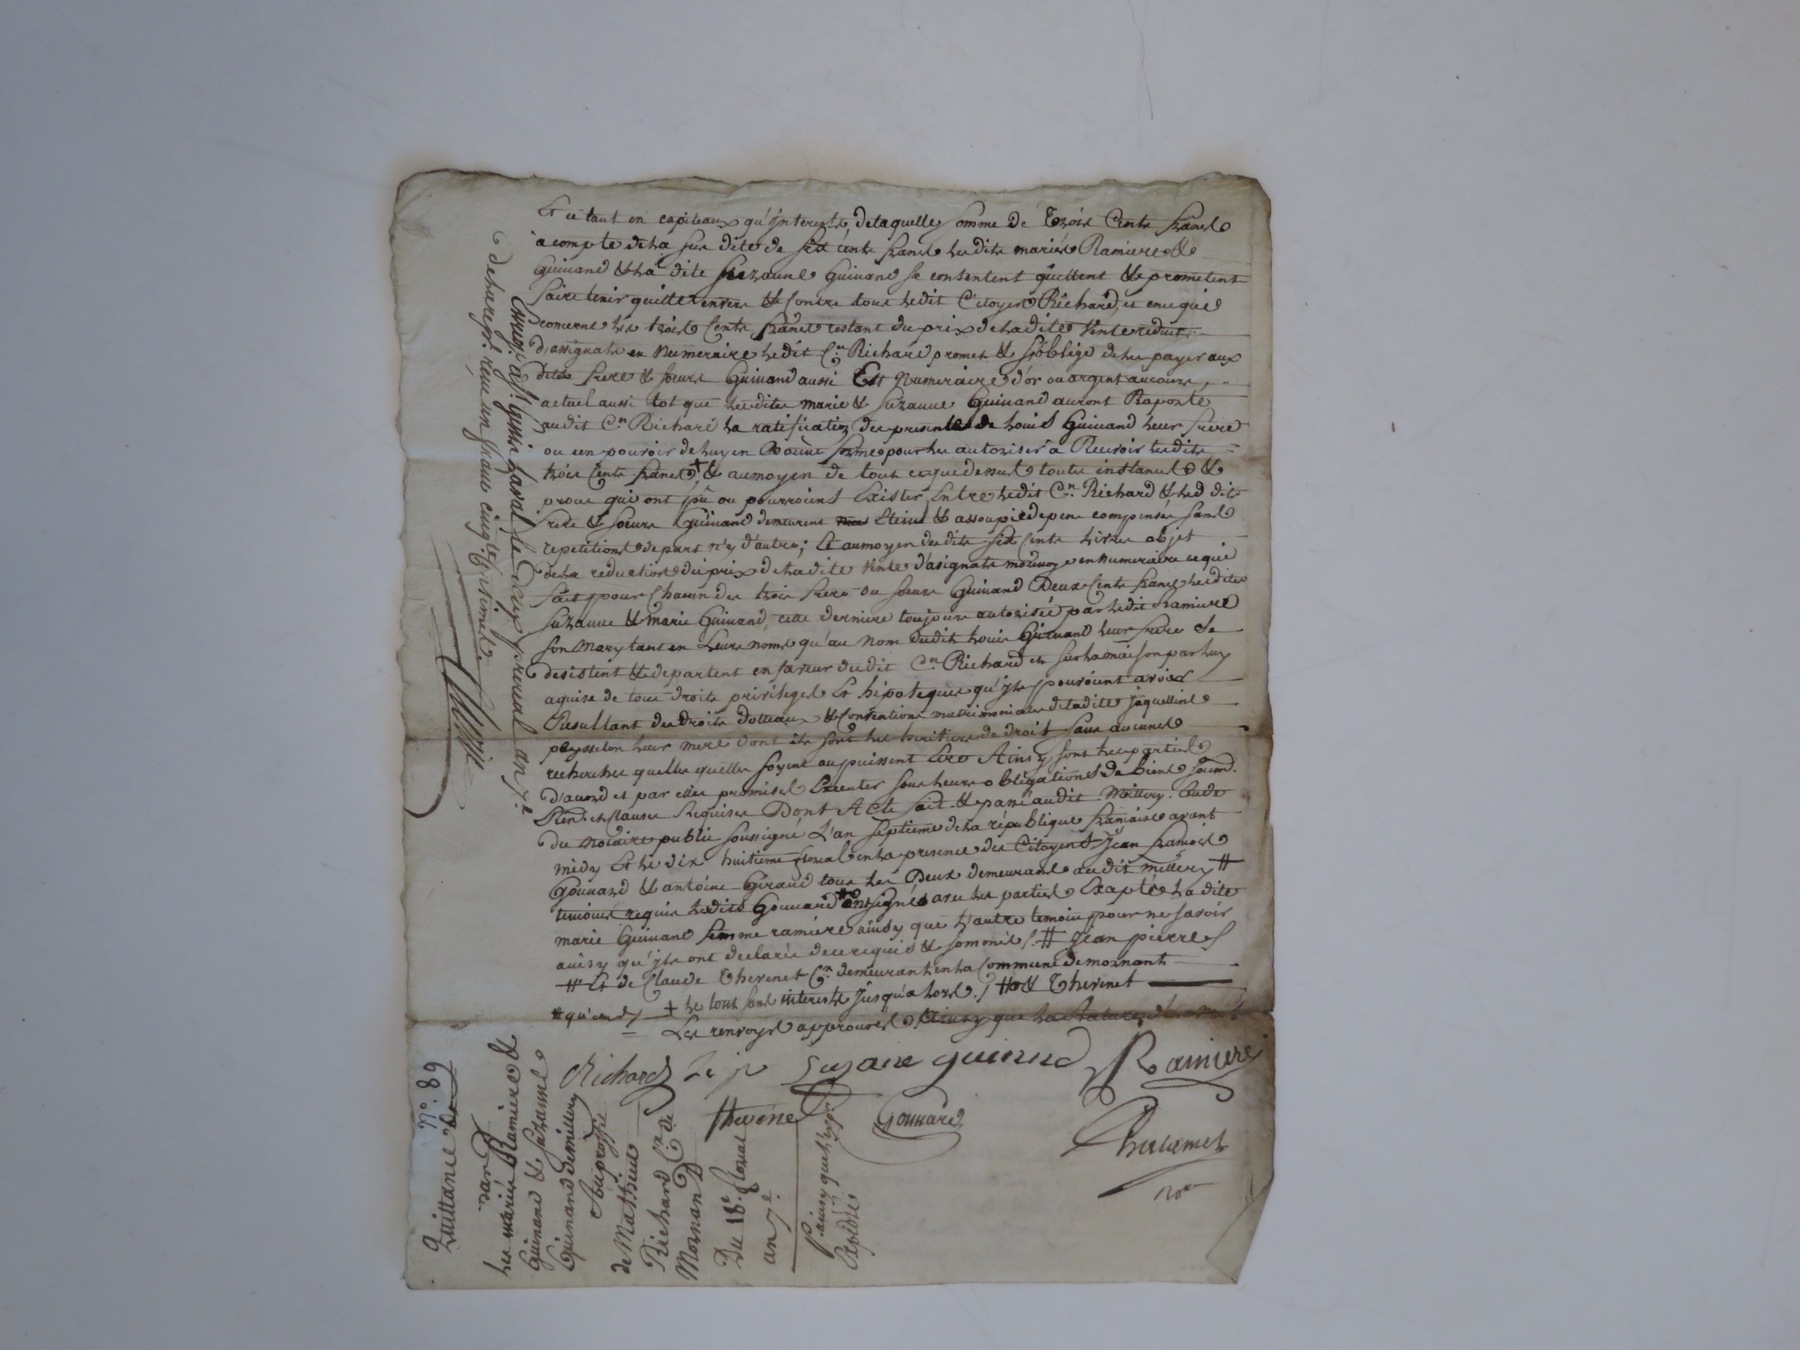 Et ce tant en capiteaux qu'jnterests, de laquelle somme de Trois Cents francs
a compte de la sus dite de six cents francs les dits mariés Ramiere &
Guinand & la dite Suzanne Guinand se contentent quittent & prometent
faire tenir quitte envers & contre tous ledit Citoyen Richard, et en ce qui
concerne les trois Cents francs restant du prix de la dite vente reduit
d'assignats en numeraire ledit Cn. Richard promet & s'oblige de les payer aux
dits frere & soeurs Guinand aussi En numeraire d'or ou argent au cours
actuel aussi tot que lesdites marie & suzanne Guinand auront Raporté
audit Cn. Richard la ratification des presentes de Louis Guinand leur frere
ou un pouvoir de luy en bonne forme pour les autoriser a Recevoir lesdits
trois Cents francs + & au moyen de tout ce que dessus toutes instances &
procès qui ont pu ou pourroient Exister Entre ledit Cn. Richard & lesd dits
frere & soeurs Guinand demeurent Eteins & assoupis depens compensés sans
repetitions de part n'y d'autre; Et au moyen desdits six Cents livres objet
de la reduction du prix de la dite vente d'asignats monnoye en numeraire ce qui
fait pour Chacun des trois frere ou soeurs Guinand Deux Cents francs lesdites
Suzanne & marie Guinand, cette derniere toujours autorisée par ledit Ramiere
son Mary tant en Leurs noms qu'au nom dudit Louis Guinand leur frere se
desistent & departent en faveur dudit Cn. Richard et sur la maison par luy
aquise de tous droits privileges Et hipoteques qu'jls pouroient avoir
Resultant des droits dotteaux & conventions matrimoniales de la dite jaquelline
peysselon leur mere dont ils sont les heritiers de droit sans aucunes
recherches quelles quelles soyent ou puissent Etre Ainsy sont les parties
d'acord et par elles promises Executer sous leurs obligations de biens soumd.
Rend. et clauses Requises Dont Acte fait & passé audit Millery. Etude
du notaire public soussigné L'an septieme de la république francaise avant
midy Et le dix huitieme floreal en la presence des Citoyens Jean francois
Gounard & antoine Giraud tous les Deux demeurants audit millery #
temoins requis ledits Gounard ont signés avec les parties Exapté la dite
marie Guinand femme ramiere ainsy que l'autre temoin pour ne savoir
ainsy qu'jls ont declarés de ce requis & sommés /. # Jean pierre /
# Et de Claude Thevenet Cn. demeurant en la Commune de mornant
# qu'en d / + le tout sans interests jusqu'a lors. / # & Thevenet
Les renvoys approuvés
Richard
Suzane guinand
Ramiere
Thevenet
Gounard
nore
No. 89
Quittance de
par
les mariés Ramiere &
Guinand & Suzanne
Guinand de millery
Au proffit
de Mathieu
Richard Cn. de
Mornand
Du 18e. floreal
an 7e.